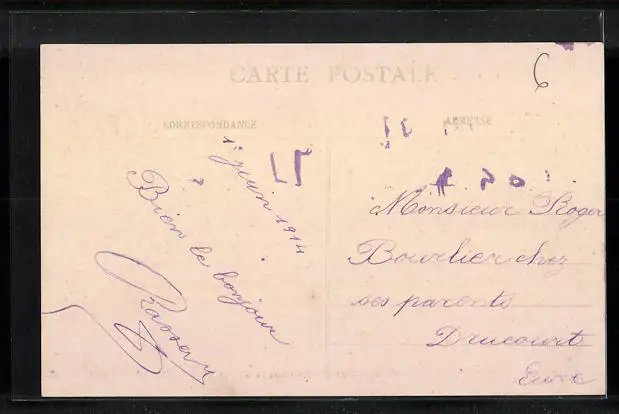 CARTE POSTALE
CORRESPONDANCE
ADRESSE
6
1er juin 1914
Bien le bonjour
Monsieur Roger
Bourlier chez
ses parents
Drucourt
Eure